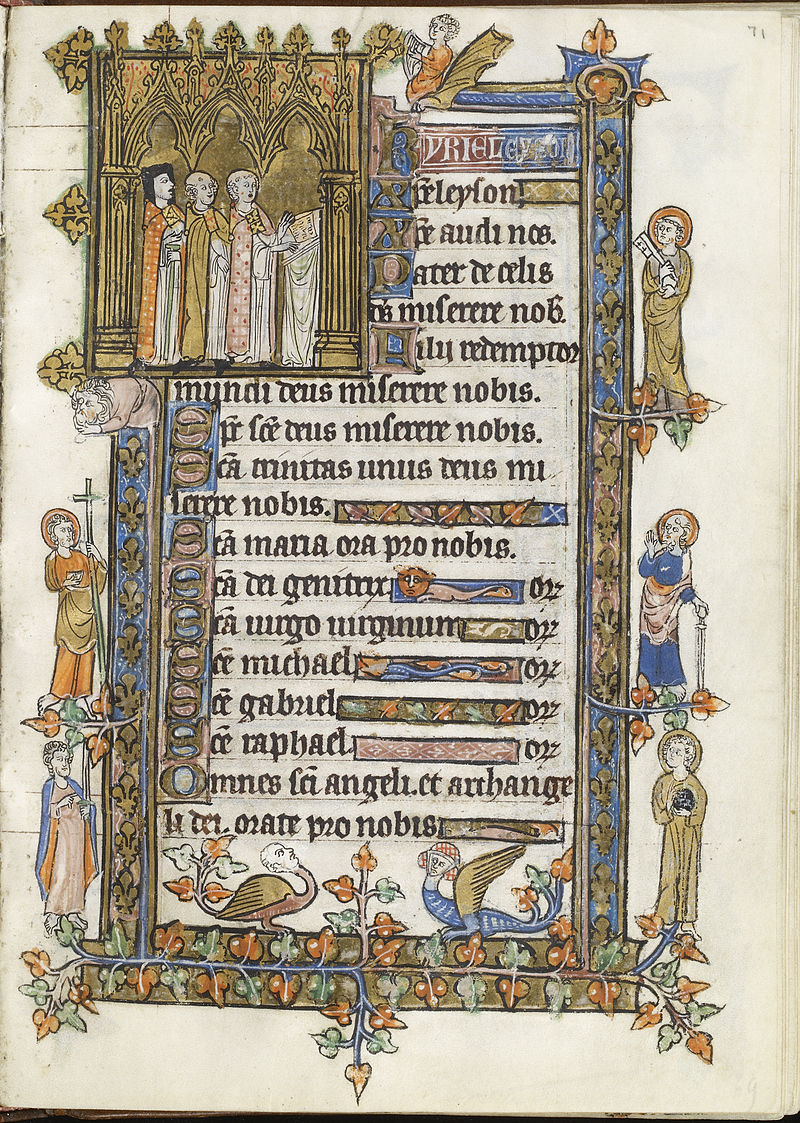 71
KYRIELEYSON
Xp̃eleyson.
Xp̃e audi nos.
Pater de celis
ds̃ miserere nob̃.
Fili redemptor
mundi deus miserere nobis.
Sp̃c sc̃e deus miserere nobis.
Sc̃a trinitas unus deus mi
serere nobis.
Sc̃a maria ora pro nobis.
Sc̃a dei genitrix or
Sc̃a uirgo uirginum or
Sc̃e michael or
Sc̃e gabriel or
Sc̃e raphael. or
Omnes sc̃i angeli. et archange
li dei. orate pro nobis